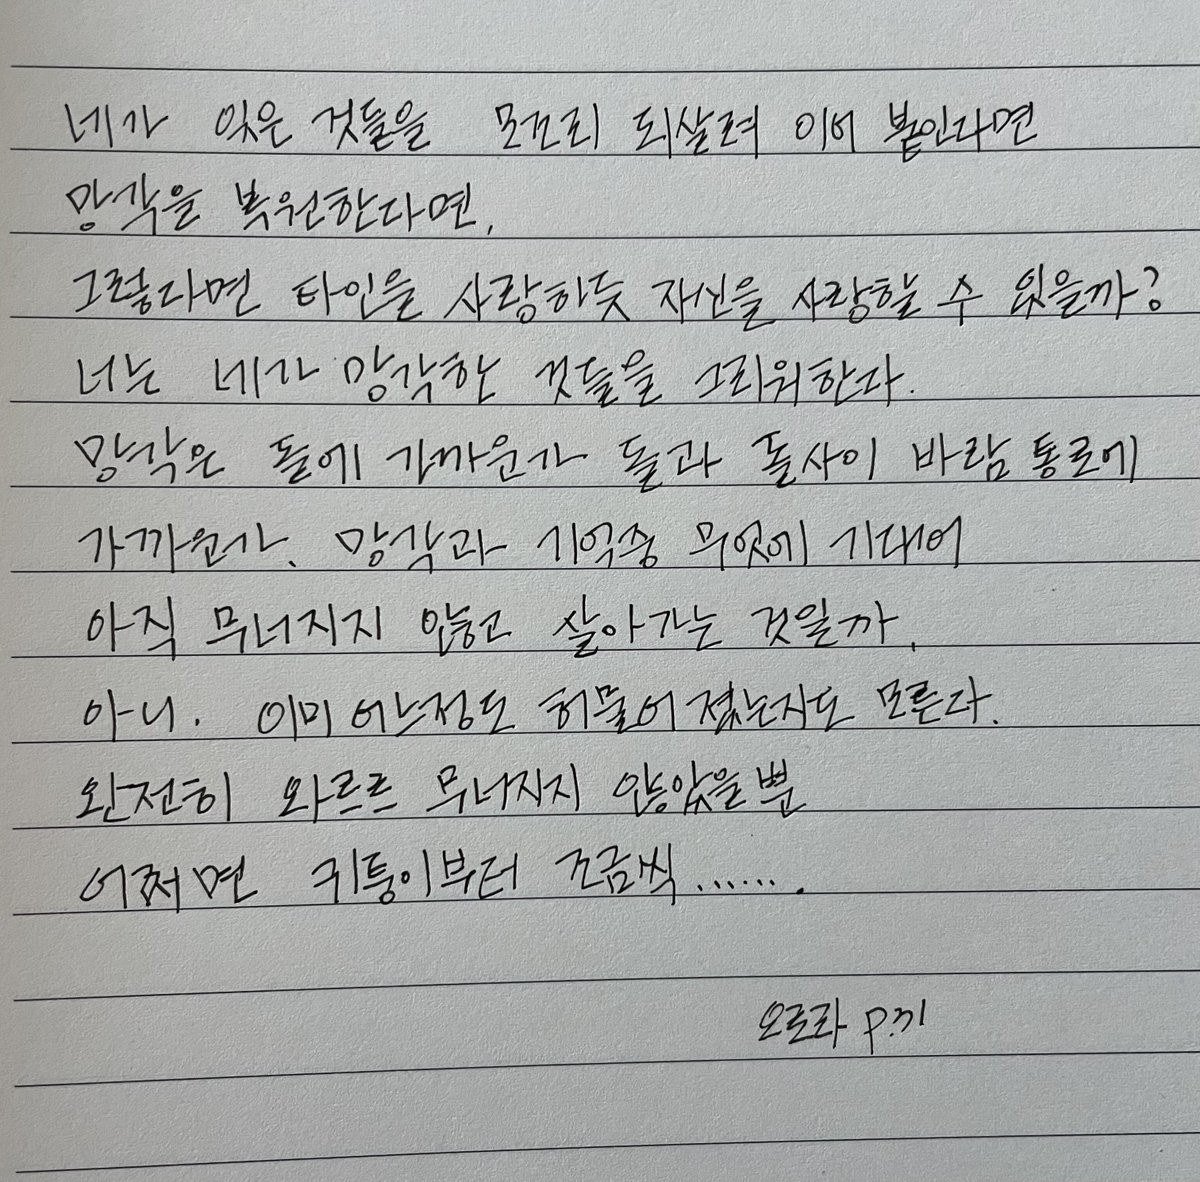 네가 잊은 것들을 모조리 되살려 이어 붙인다면
망각을 복원한다면,
그렇다면 타인을 사랑하듯 자신을 사랑할 수 있을까?
너는 네가 망각한 것들을 그리워한다.
망각은 돌에 가까운가 돌과 돌사이 바람 통로에
가까운가. 망각과 기억중 무엇에 기대어
아직 무너지지 않고 살아가는 것일까.
아니. 이미 어느정도 허물어졌는지도 모른다.
완전히 와르르 무너지지 않았을 뿐
어쩌면 귀퉁이부터 조금씩.......
오로라 p.71